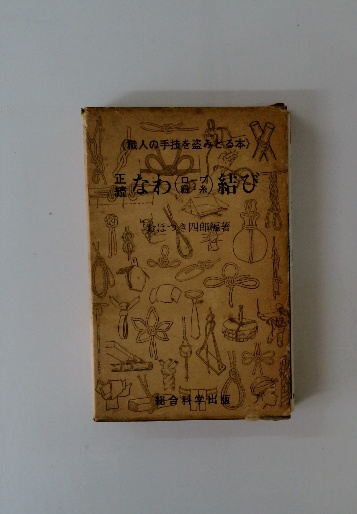 〈職人の手技を盗みとる本〉
正続 なわ(ロープ 紐糸)結び
おほつき四郎編著
総合科学出版